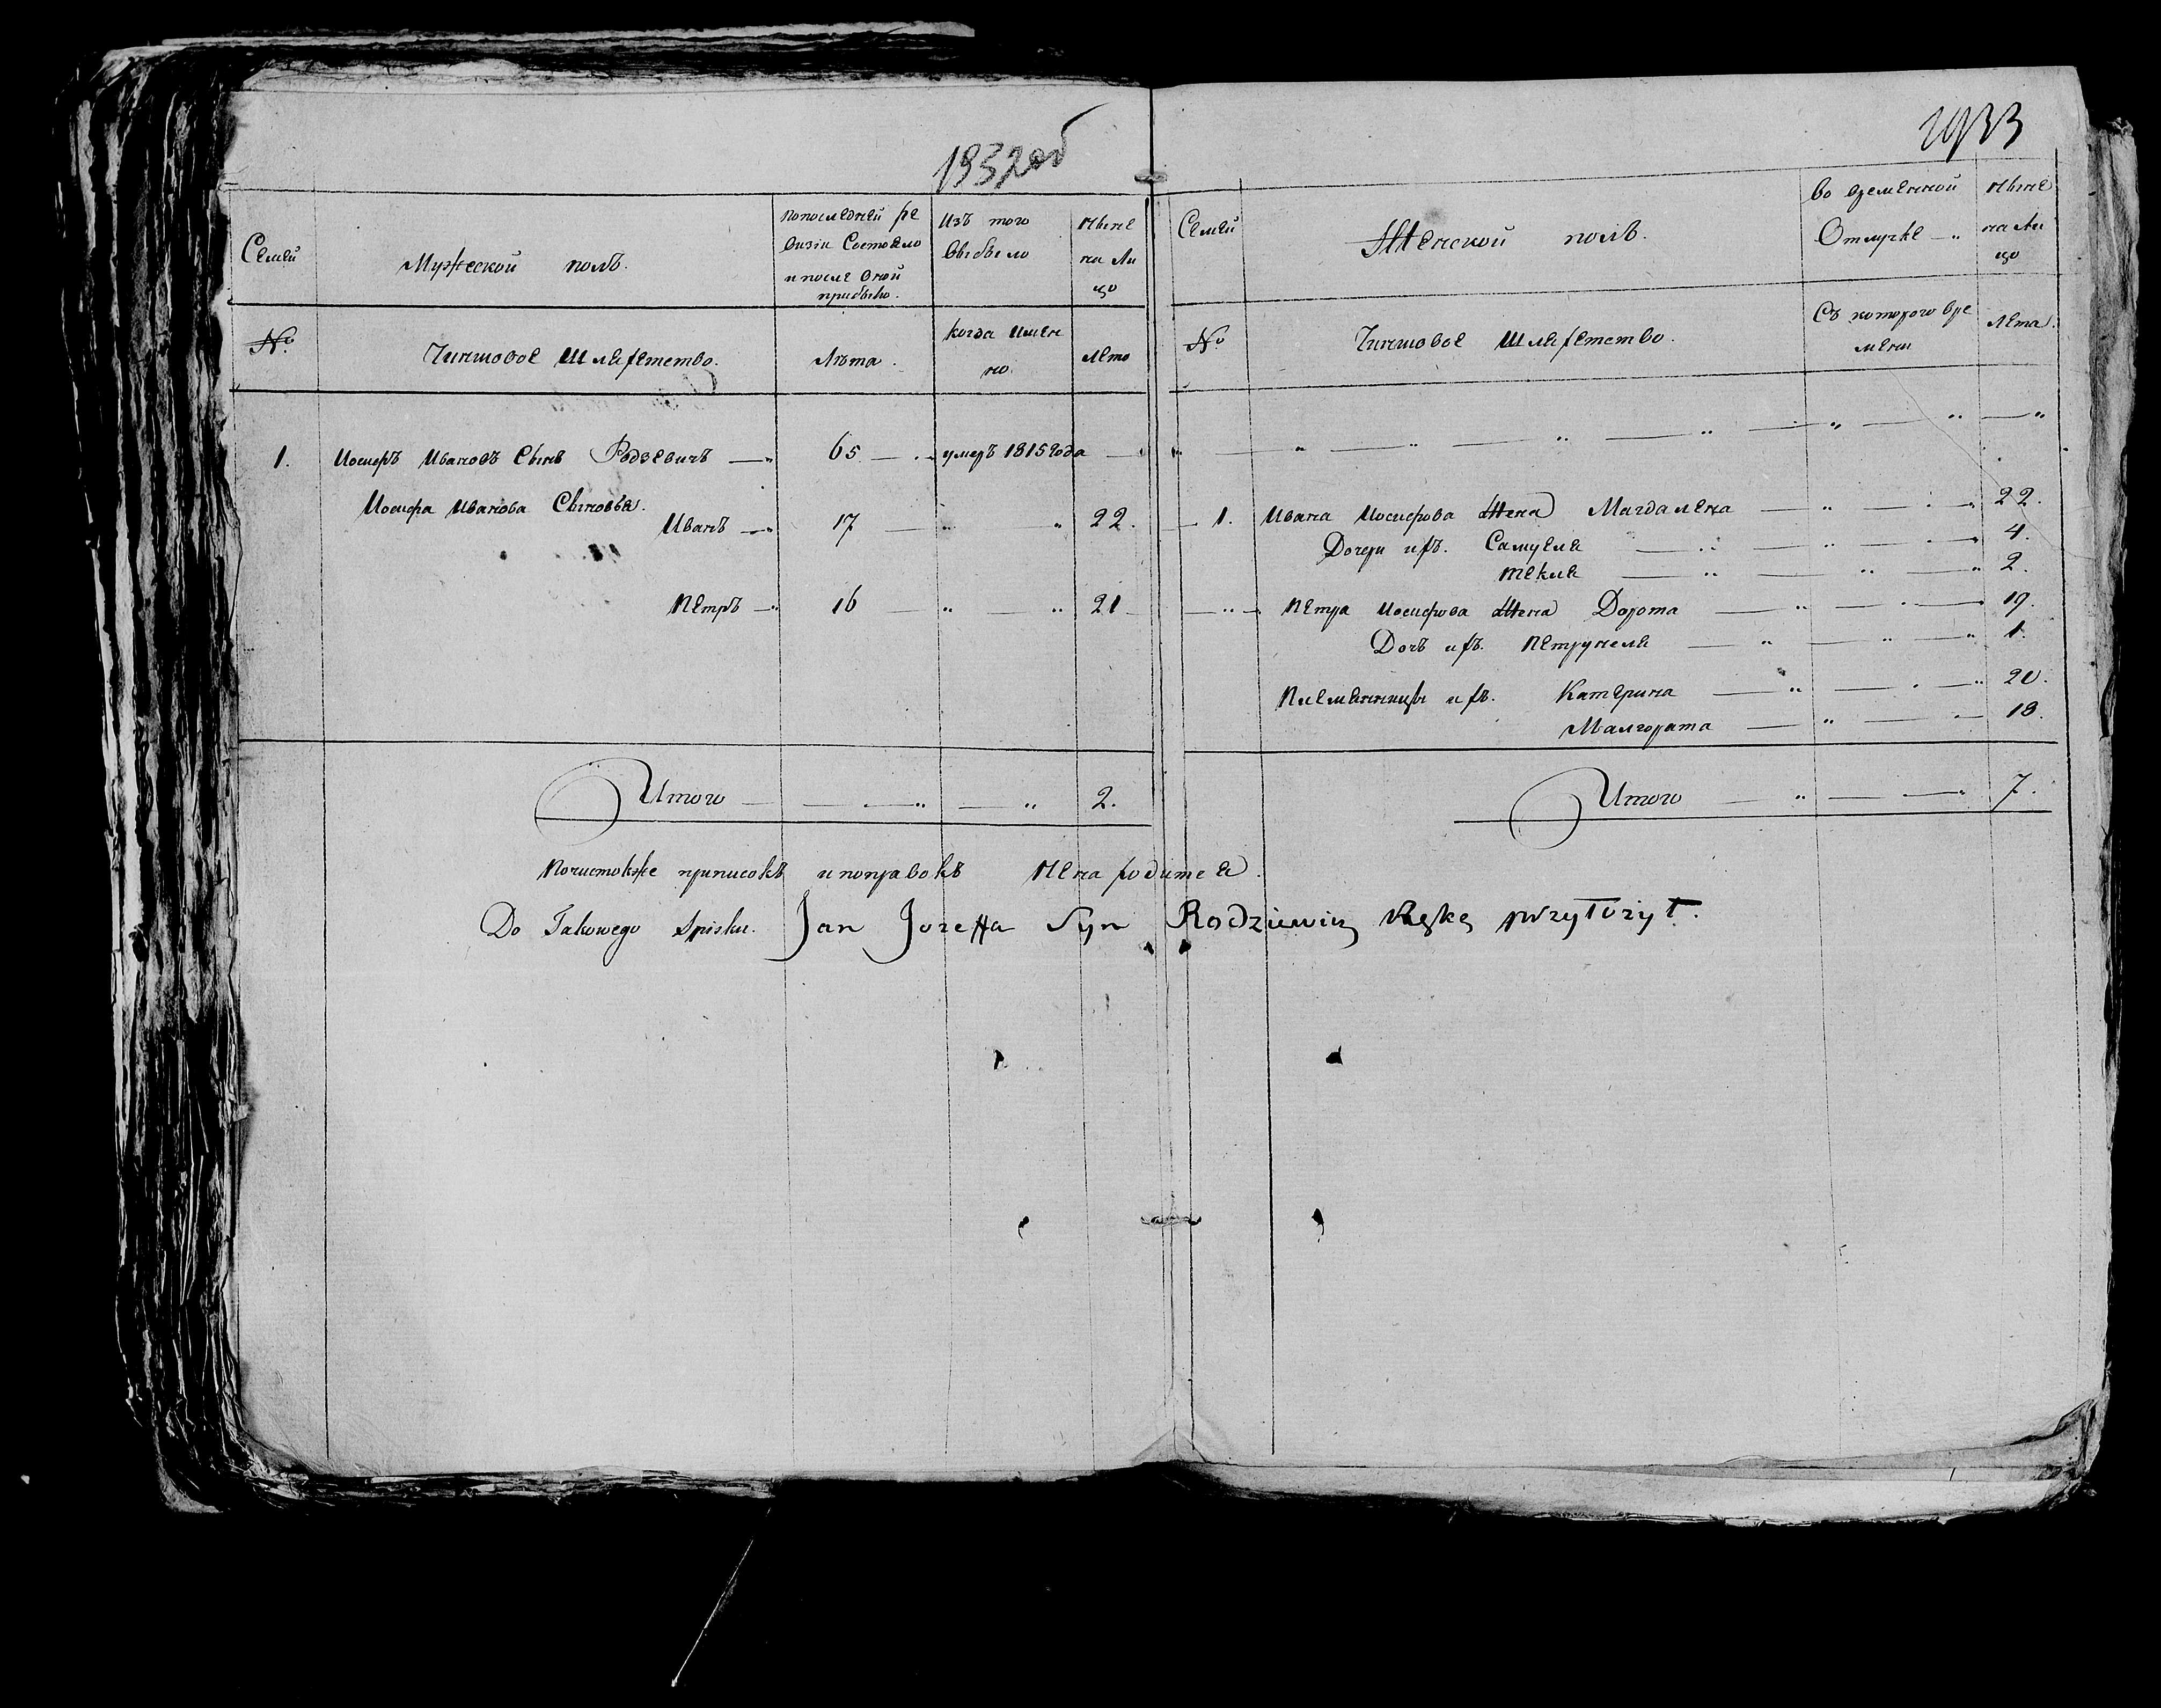 1932 об
Семьи
Мужеской полъ.
Попоследней ре
визіи Состояло
и после оной
прибыло.
Изъ того
выбыло
Ныне
на Ли
цо
№
Чиншовое Шляхетство.
Лѣта.
когда Имен
но.
Лета
1. Иосифъ Ивановъ Сынъ Родзевичъ — 65 — умеръ 1815 года
Иосифа Иванова Сыновья.
Иванъ — 17 — " " 22.
Петръ — 16 — " — " 21
Итого — 2.
1933
Семьи
Женской полъ.
во временной
Отлучке — "
Ныне
на Ли
цо
№
Чиншовое Шляхетство.
Съ которого вре
мени
Лета.
1. Ивана Иосифова Жена Магдалена — 22.
Дочери ихъ. Самуеля — 4.
Текля — 2.
Петра Иосифова Жена Дорота — 19.
Дочь ихъ. Петрунеля — 1.
Племянницы ихъ. Катерина — 20.
Малгората — 18.
Итого — 7.
Почистокже приписокъ и поправокъ Ненаходитея.
Do Takowego Spisku. Jan Jozeffa Syn Rodziewicz Rękę przyłożył.